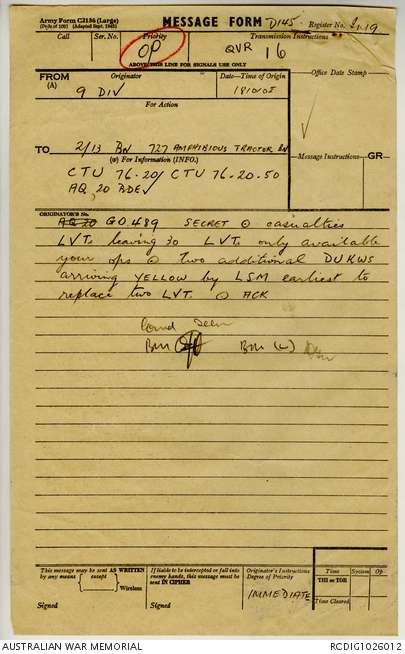 Army Form C2136 (Large)
MESSAGE FORM D145 Register No.
Call Ser. No. Priority Transmission Instructions
OP QVR 16
ABOVE THIS LINE FOR SIGNALS USE ONLY
FROM Originator Date—Time of Origin Office Date Stamp
(A) 9 DIV
For Action
TO 2/13 BN 727 AMPHIBIOUS TRACTOR BN
(W) For Information (INFO.) Message Instructions GR
CTU 76.20/ CTU 76.20.50
AQ 20 BDE
ORIGINATOR'S No.
AQ 20 GO 489 SECRET casualties
LVTs leaving 30 LVTs only available
your ops two additional DUKWS
arriving YELLOW by LSM earliest to
replace two LVT ACK
Comd Seen
BM BM (L)
This message may be sent AS WRITTEN
by any means except Wireless
Signed
If liable to be intercepted or fall into
enemy hands, this message must be
sent IN CIPHER
Signed
Originator's Instructions
Degree of Priority
IMMEDIATE
Time System Op
THI or TOR
Time Cleared
AUSTRALIAN WAR MEMORIAL RCDIG1026012